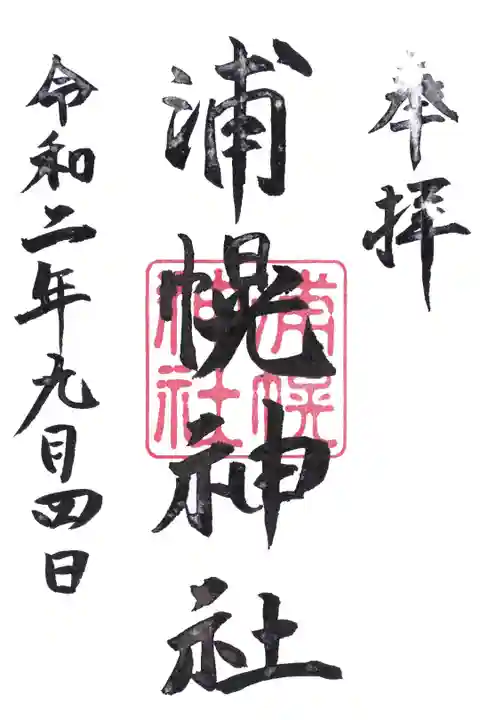 奉拝
浦幌神社
浦幌
神社
令和二年九月四日